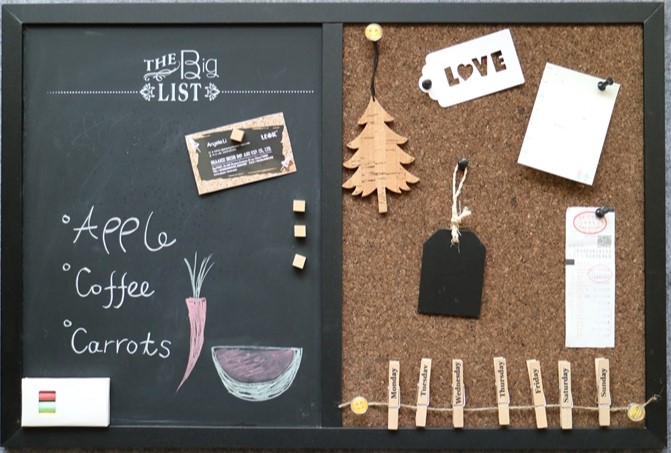 THE Big
LIST
Angela Li
Apple
Coffee
Carrots
LOVE
Monday
Tuesday
Wednesday
Thursday
Friday
Saturday
Sunday